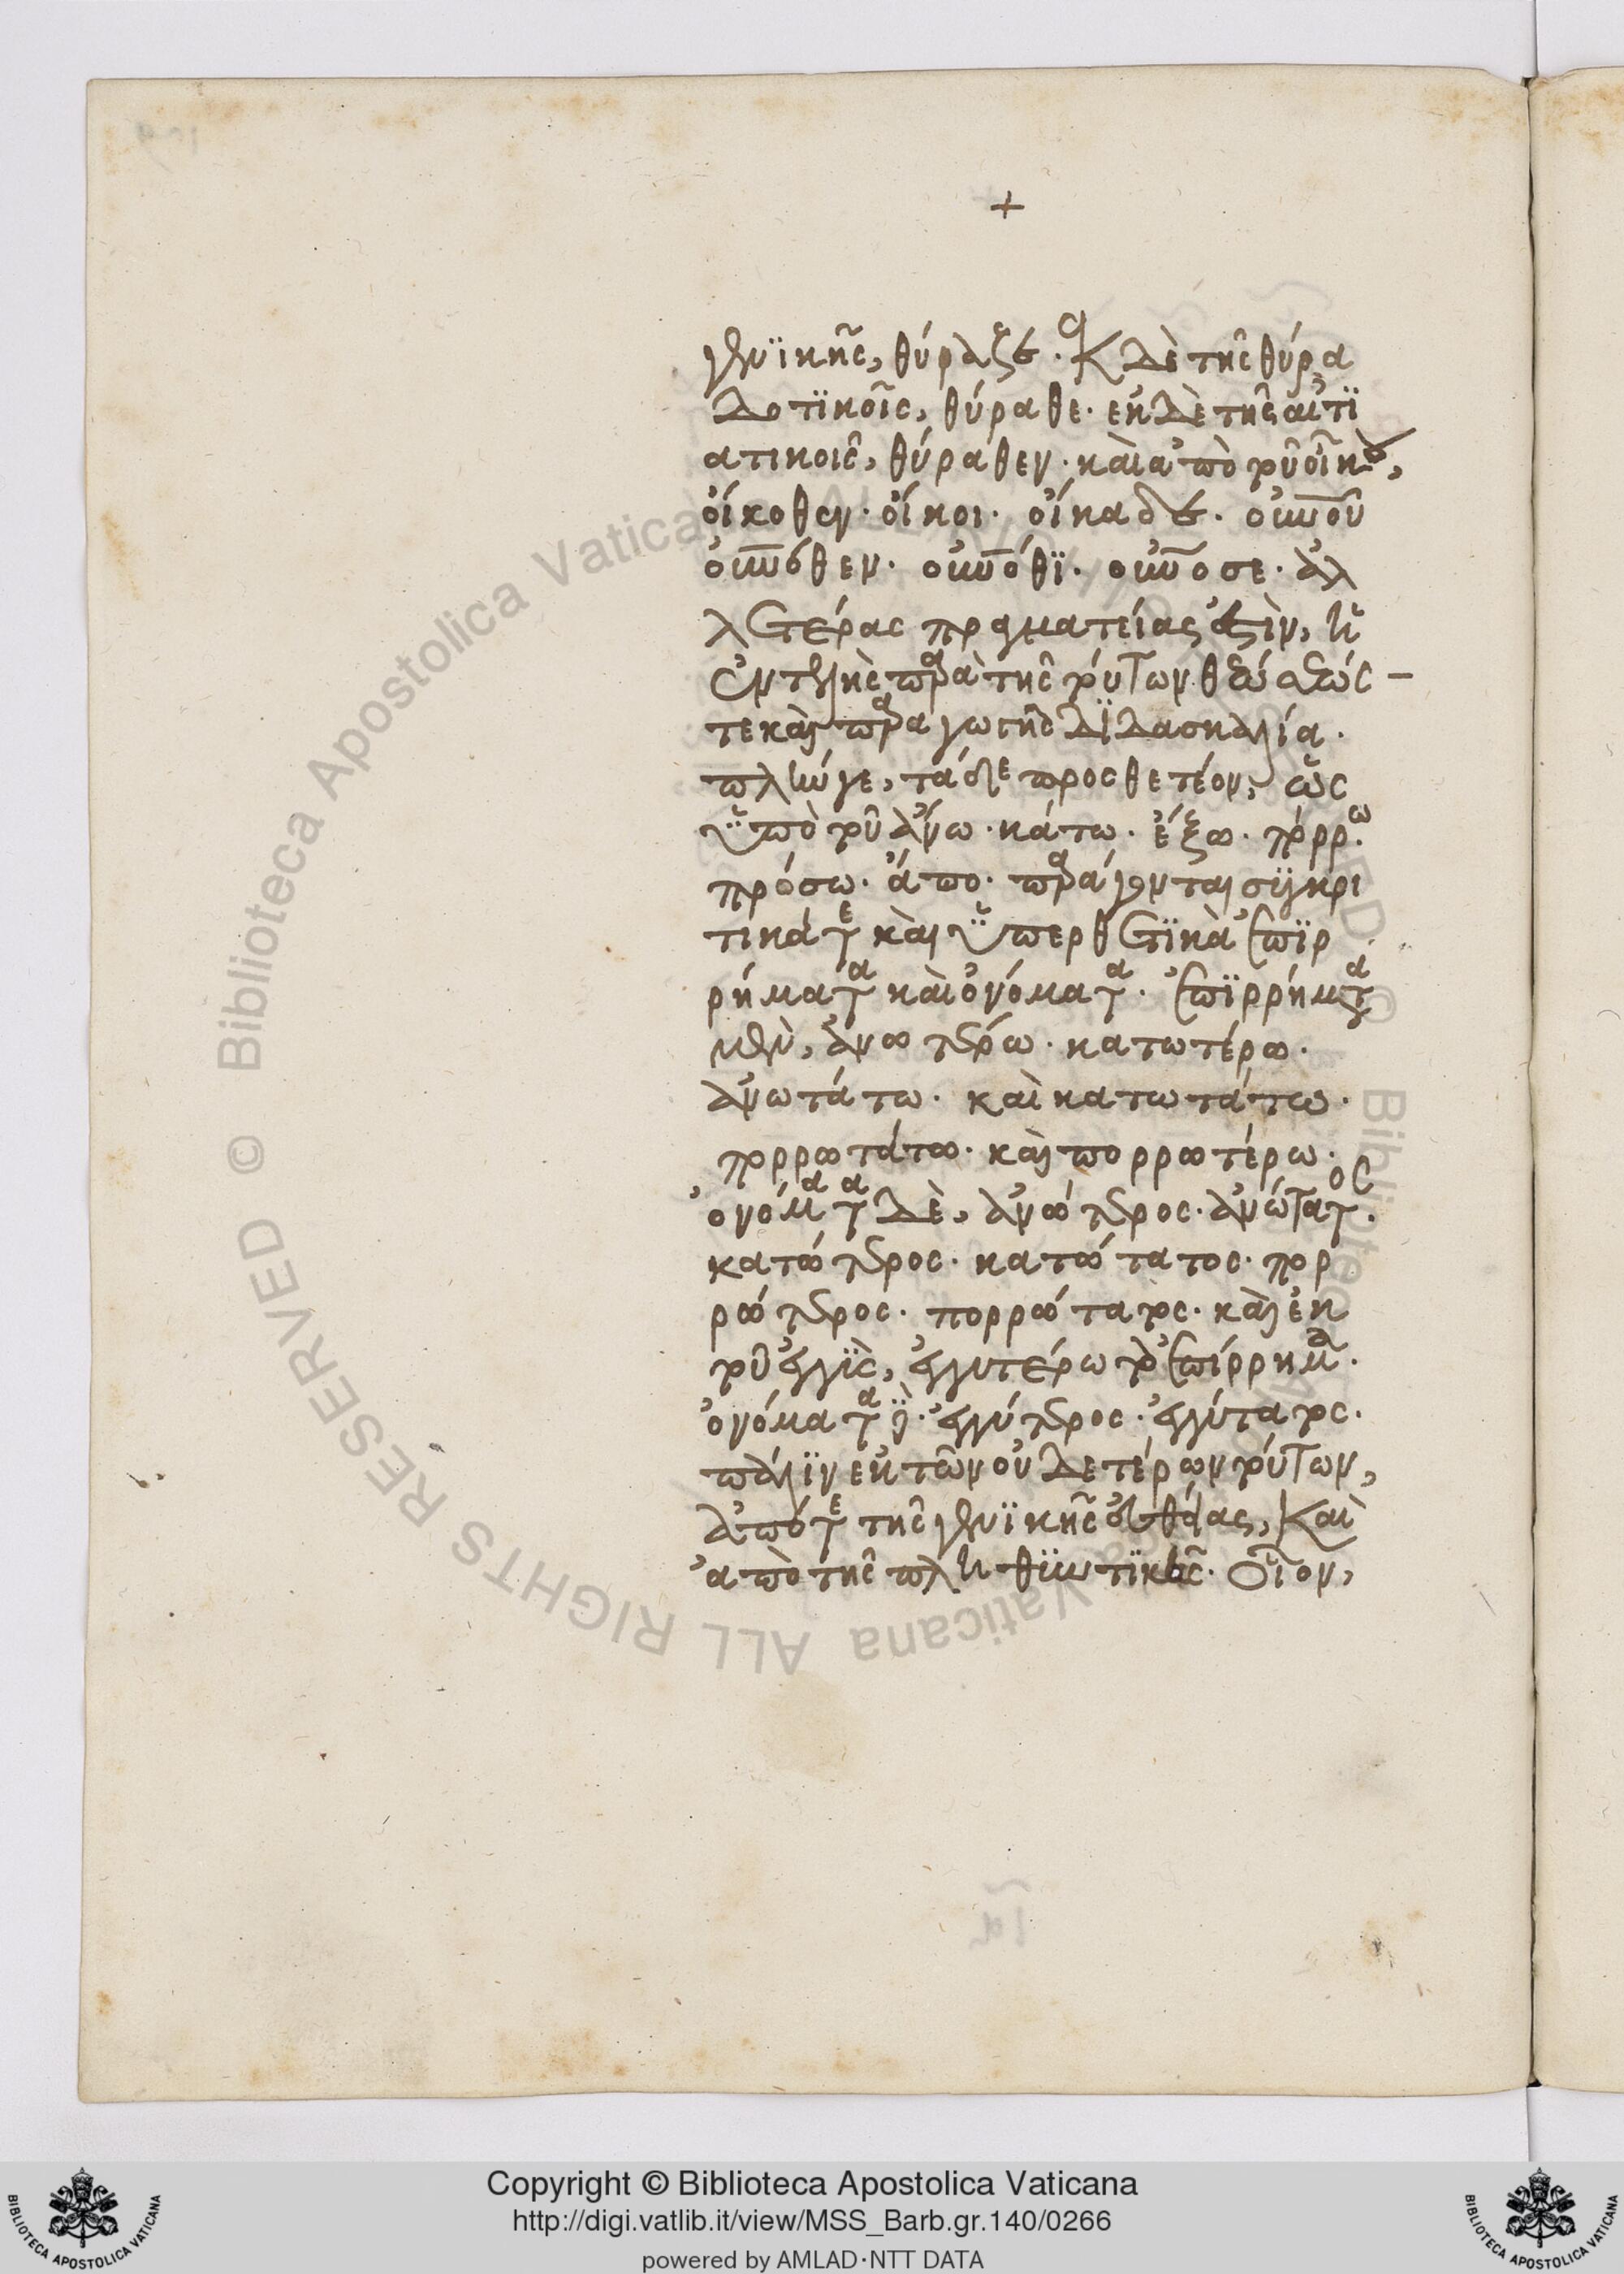 +
γενϊκῆς, θύραζε. ἐκ δὲ τῆς θύρα
δοτϊκοῖς, θύραθε. ἐκ δὲ τῆς αἰτϊ
ατικοῖς, θύραθεν. καὶ ἀπὸ τοῦ οἶκος,
οἴκοθεν. οἴκοι. οἴκαδε. ὁποῦ
ὁπόθεν. ὁπόθϊ. ὁπόσε. ἀλ
λ ἑτέρας πραγματείας ἐστὶν, ἡ
τε καὶ παραγωγῆς δϊδασκαλία.
πλήν γε, τόδε προσθετέον, ὡς
ϋπὸ τοῦ ἄνω. κάτω. ἔξω. πόρρω.
πρόσω. ἄπο. παράγονται συγκρι
τικά τε καὶ ϋπερθετϊκὰ ἐπϊρ
ρήματα καὶ ὀνόματα. ἐπϊρρήματα
μὲν, ἀνωτέρω. κατωτέρω.
ἀνωτάτω. καὶ κατωτάτω.
πορρωτάτω. καὶ πορρωτέρω.
ὀνόματα δὲ, ἀνώτερος. ἀνώτατος.
κατώτερος. κατώτατος. πορ
ρώτερος. πορρώτατος. καὶ ἐκ
τοῦ ἐγγὺς, ἐγγυτέρω τὸ ἐπίρρημα.
ὀνόματα δὲ. ἐγγύτερος. ἐγγύτατος.
πάλϊν ἐκ τῶν οὐδετέρων τούτων,
ἀπό τε τῆς γενϊκῆς εὐθείας, καὶ
ἀπὸ τῆς πληθϋντϊκῆς. οἷον,
Copyright © Biblioteca Apostolica Vaticana
http://digi.vatlib.it/view/MSS_Barb.gr.140/0266
powered by AMLAD·NTT DATA
Biblioteca Apostolica Vaticana ALL RIGHTS RESERVED ©